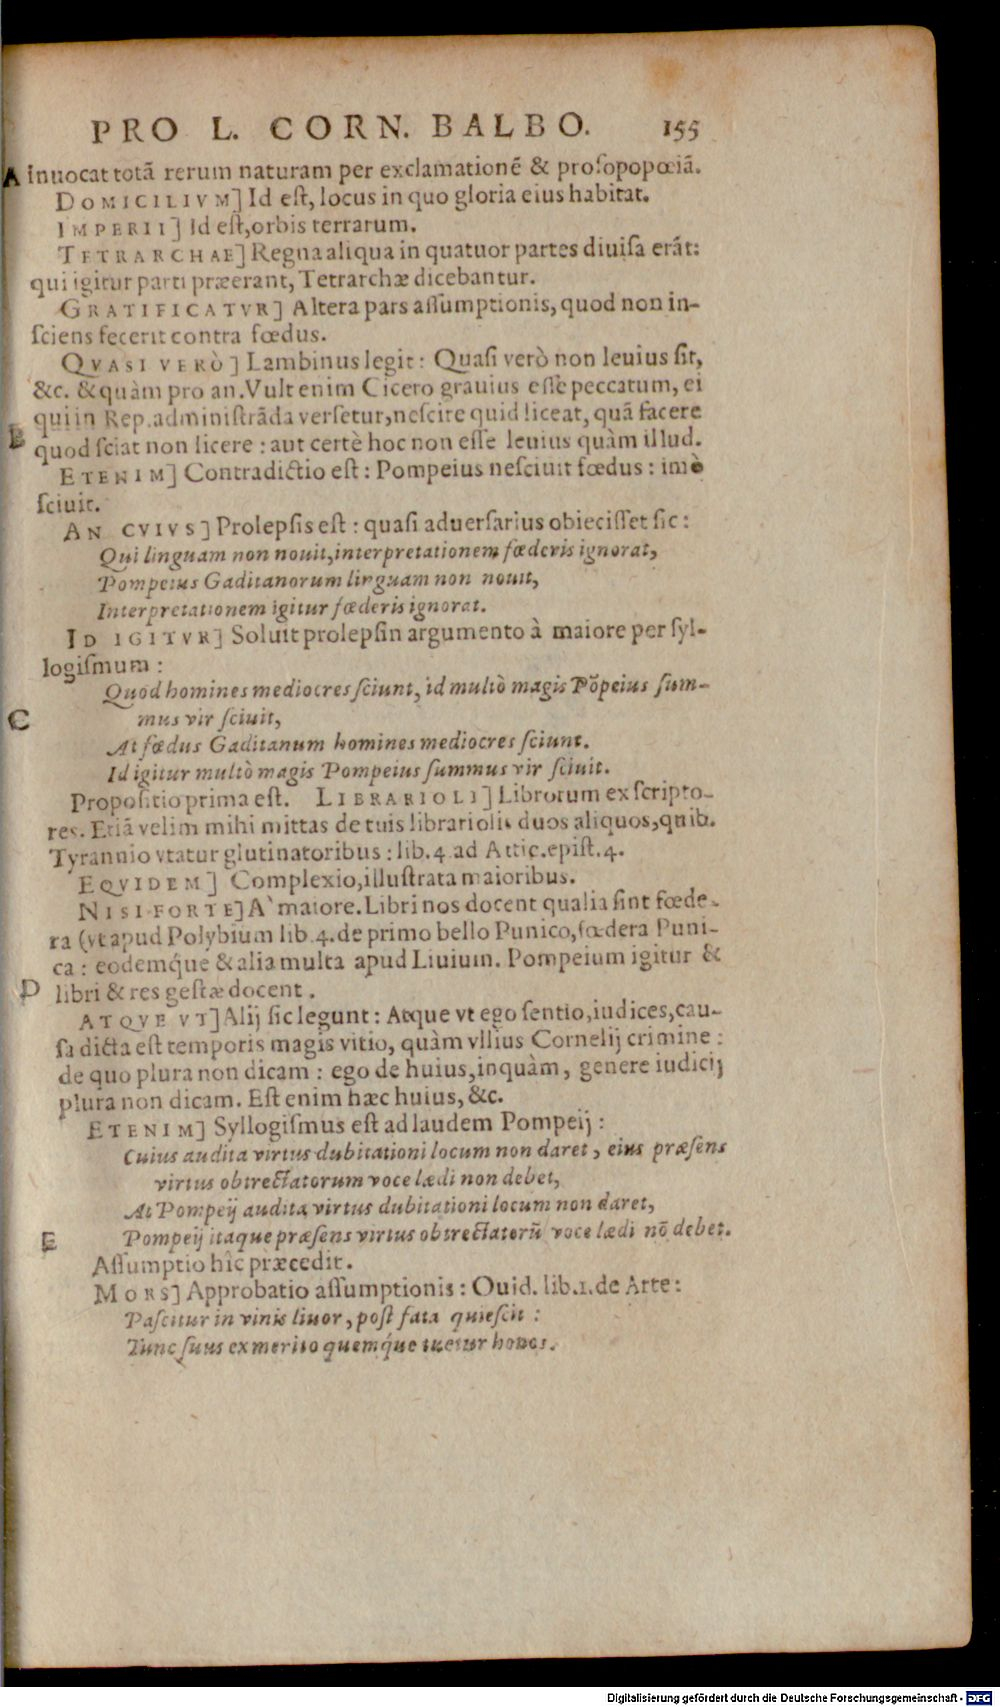 PRO L. CORN. BALBO. 155
A inuocat totã rerum naturam per exclamationẽ & prosopopœiã.
DOMICILIVM] Id est, locus in quo gloria eius habitat.
IMPERII] Id est, orbis terrarum.
TETRARCHAE] Regna aliqua in quatuor partes diuisa erãt:
qui igitur parti præerant, Tetrarchæ dicebantur.
GRATIFICATVR] Altera pars assumptionis, quod non in-
sciens fecerit contra fœdus.
QVASI VERÒ] Lambinus legit: Quasi verò non leuius sit,
&c. & quàm pro an. Vult enim Cicero grauius esse peccatum, ei
qui in Rep. administrãda versetur, nescire quid liceat, quã facere
B quod sciat non licere: aut certè hoc non esse leuius quàm illud.
ETENIM] Contradictio est: Pompeius nesciuit fœdus: imò
sciuit.
AN CVIVS] Prolepsis est: quasi aduersarius obiecisset sic:
Qui linguam non nouit, interpretationem fœderis ignorat,
Pompeius Gaditanorum linguam non nouit,
Interpretationem igitur fœderis ignorat.
ID IGITVR] Soluit prolepsin argumento à maiore per syl-
logismum:
Quod homines mediocres sciunt, id multò magis Põpeius sum-
C mus vir sciuit,
At fœdus Gaditanum homines mediocres sciunt.
Id igitur multò magis Pompeius summus vir sciuit.
Propositio prima est. LIBRARIOLI] Librorum exscripto-
res. Etiã velim mihi mittas de tuis librariolis duos aliquos, quib.
Tyrannio vtatur glutinatoribus: lib. 4. ad Attic. epist. 4.
EQVIDEM] Complexio, illustrata maioribus.
NISI FORTE] A` maiore. Libri nos docent qualia sint fœde-
ra (vt apud Polybium lib. 4. de primo bello Punico, fœdera Puni-
ca: eodemq́ue & alia multa apud Liuium. Pompeium igitur &
D libri & res gestæ docent.
ATQVE VT] Alij sic legunt: Atque vt ego sentio, iudices, cau-
sa dicta est temporis magis vitio, quàm vllius Cornelij crimine:
de quo plura non dicam: ego de huius, inquàm, genere iudicij
plura non dicam. Est enim hæc huius, &c.
ETENIM] Syllogismus est ad laudem Pompeij:
Cuius audita virtus dubitationi locum non daret, eius præsens
virtus obtrectatorum voce lædi non debet,
At Pompeij audita virtus dubitationi locum non daret,
E Pompeij itaque præsens virtus obtrectatorũ voce lædi nõ debet.
Assumptio hîc præcedit.
MORS] Approbatio assumptionis: Ouid. lib. 1. de Arte:
Pascitur in viuis liuor, post fata quiescit:
Tunc suus ex merito quemq́ue tuetur honos.
Digitalisierung gefördert durch die Deutsche Forschungsgemeinschaft - DFG